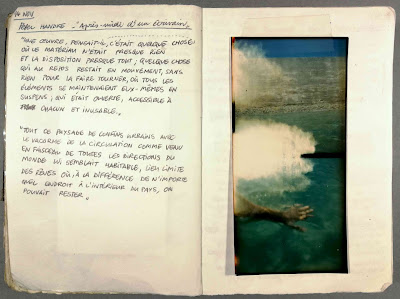 14 NOV
PETER HANDKE - "Après-midi d'un écrivain"
"UNE ŒUVRE, PENSAIT-IL, C'ÉTAIT QUELQUE CHOSE
OÙ LE MATÉRIAU N'ÉTAIT PRESQUE RIEN
ET LA DISPOSITION PRESQUE TOUT; QUELQUE CHOSE
QUI AU REPOS RESTAIT EN MOUVEMENT, SANS
RIEN POUR LA FAIRE TOURNER, OÙ TOUS LES
ÉLÉMENTS SE MAINTENAIENT EUX-MÊMES EN
SUSPENS; QUI ÉTAIT OUVERTE, ACCESSIBLE À
CHACUN ET INUSABLE."
"TOUT CE PAYSAGE DE CONFINS URBAINS AVEC
LE VACARME DE LA CIRCULATION COMME VENU
EN FAISCEAU DE TOUTES LES DIRECTIONS DU
MONDE LUI SEMBLAIT HABITABLE, LIEU LIMITE
DES RÊVES OÙ, À LA DIFFÉRENCE DE N'IMPORTE
QUEL ENDROIT À L'INTÉRIEUR DU PAYS, ON
POUVAIT RESTER"